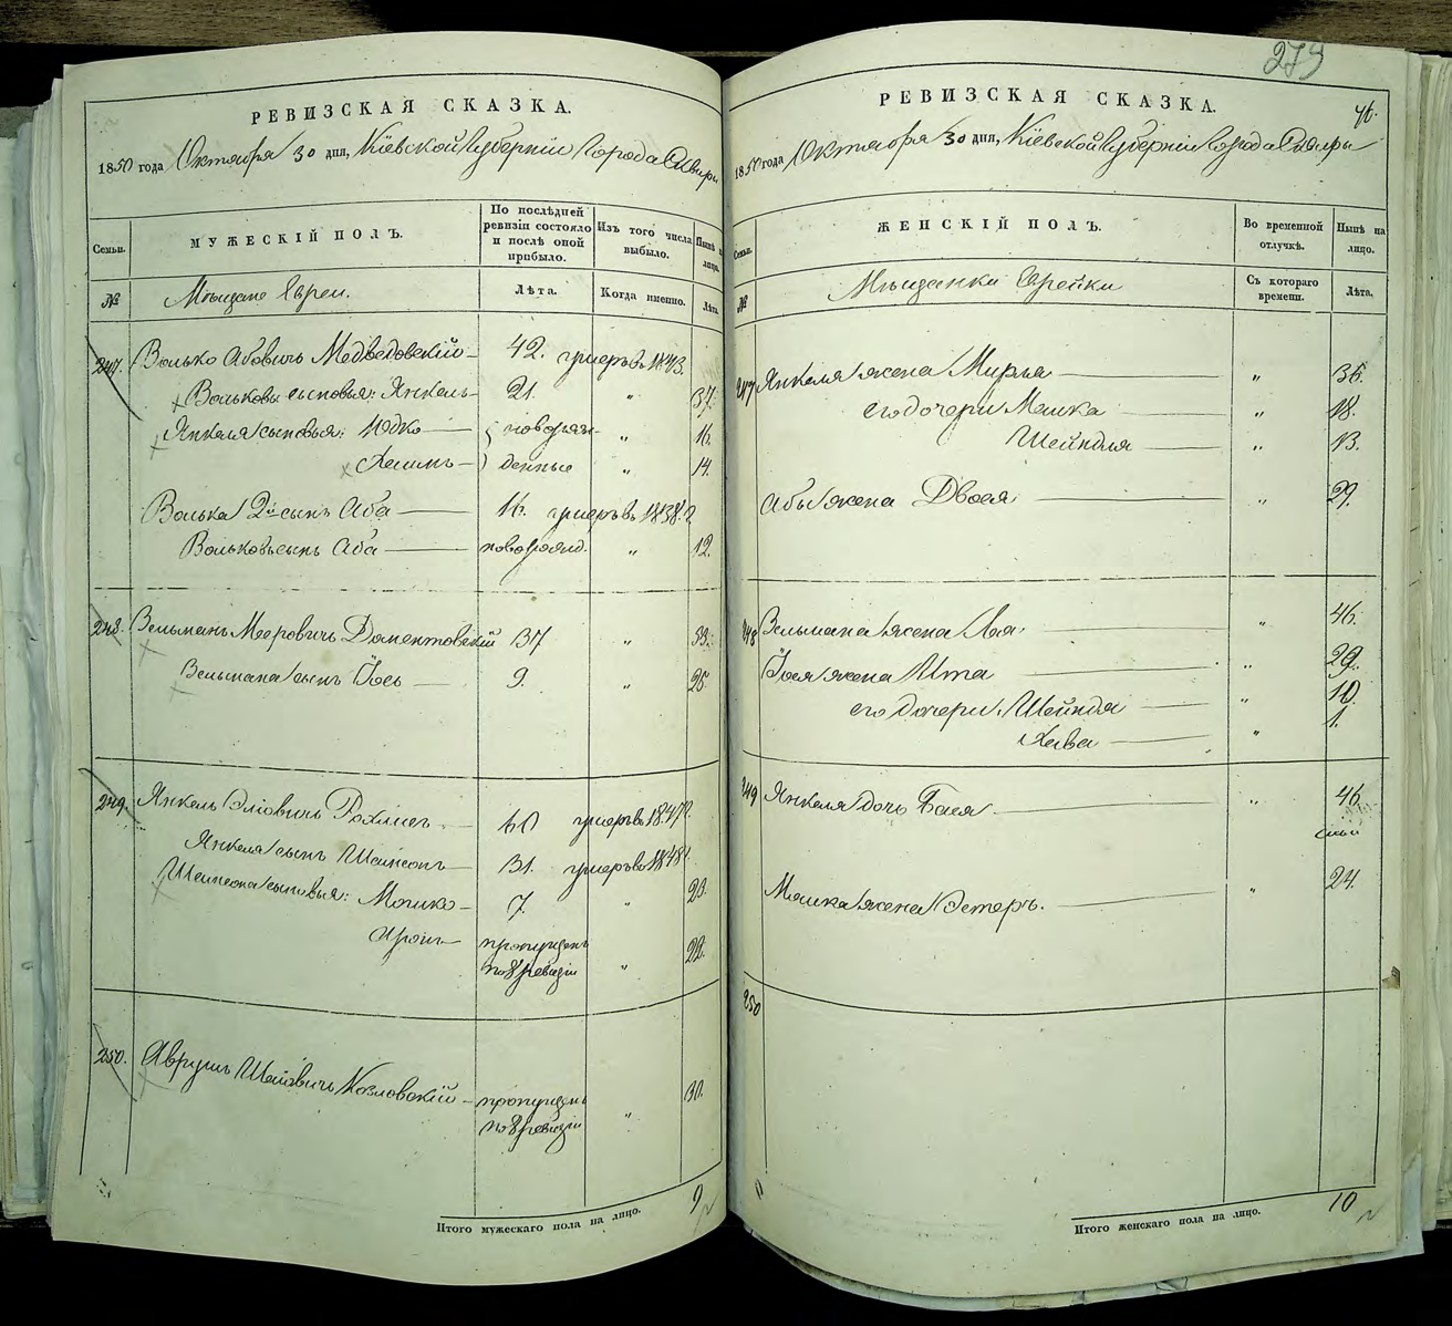 279
РЕВИЗСКАЯ СКАЗКА.
1850 года Октября 30 дня, Кіевской Губерніи Города Сквиры
Семьи.
МУЖЕСКІЙ ПОЛЪ.
По послѣдней ревизіи состояло и послѣ оной прибыло.
Изъ того числа выбыло.
Нынѣ на лицо.
№
Мѣщане Евреи.
Лѣта.
Когда именно.
Лѣта.
247. Волько Абовичъ Медведовскій 42. умеръ въ 1843.
Вольковы сыновья: Янкель 21. " 37.
Янкеля сыновья: Юдко новорож- " 16.
Хаимъ денные " 14.
Волька 2й сынъ Аба 16. умеръ въ 1838. г
Вольковъ сынъ Аба новорожд. " 12.
248. Зельманъ Мееровичъ Даментовскій 37 " 53.
Зельмана сынъ Йось 9. " 25.
249. Янкель Эліовичъ 60 умеръ въ 1847.
Янкеля сынъ Шамсонъ 31. умеръ въ 1848
Шамсона сыновья: Мошко 7. " 23.
Аронъ пропущенъ " 22.
по 8 ревизіи
250. Аврумъ Козловскій пропущенъ " 30.
по 8 ревизіи
Итого мужескаго пола на лицо. 9
РЕВИЗСКАЯ СКАЗКА.
46.
1850 года Октября 30 дня, Кіевской Губерніи Города Сквиры
Семьи.
ЖЕНСКІЙ ПОЛЪ.
Во временной отлучкѣ.
Нынѣ на лицо.
№
Мѣщанки Еврейки
Съ котораго времени.
Лѣта.
247 Янкеля жена Мирля " 36.
его дочери Малка " 18.
Шейндля " 13.
Абы жена Двося " 29.
248 Зельмана жена Лея " 46.
Йося жена Ита " 29.
его дочери: Шейндя " 10.
Хава " 1.
249 Янкеля дочь Бася " 46
Мошка жена Эстеръ. " 24.
250
Итого женскаго пола на лицо. 10